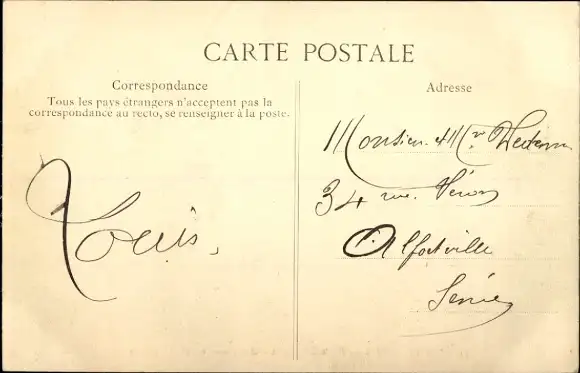 CARTE POSTALE
Correspondance
Tous les pays étrangers n'acceptent pas la
correspondance au recto, se renseigner à la poste.
Louis
Adresse
Monsieur et Mr
34 rue Véron
Alfortville
Seine